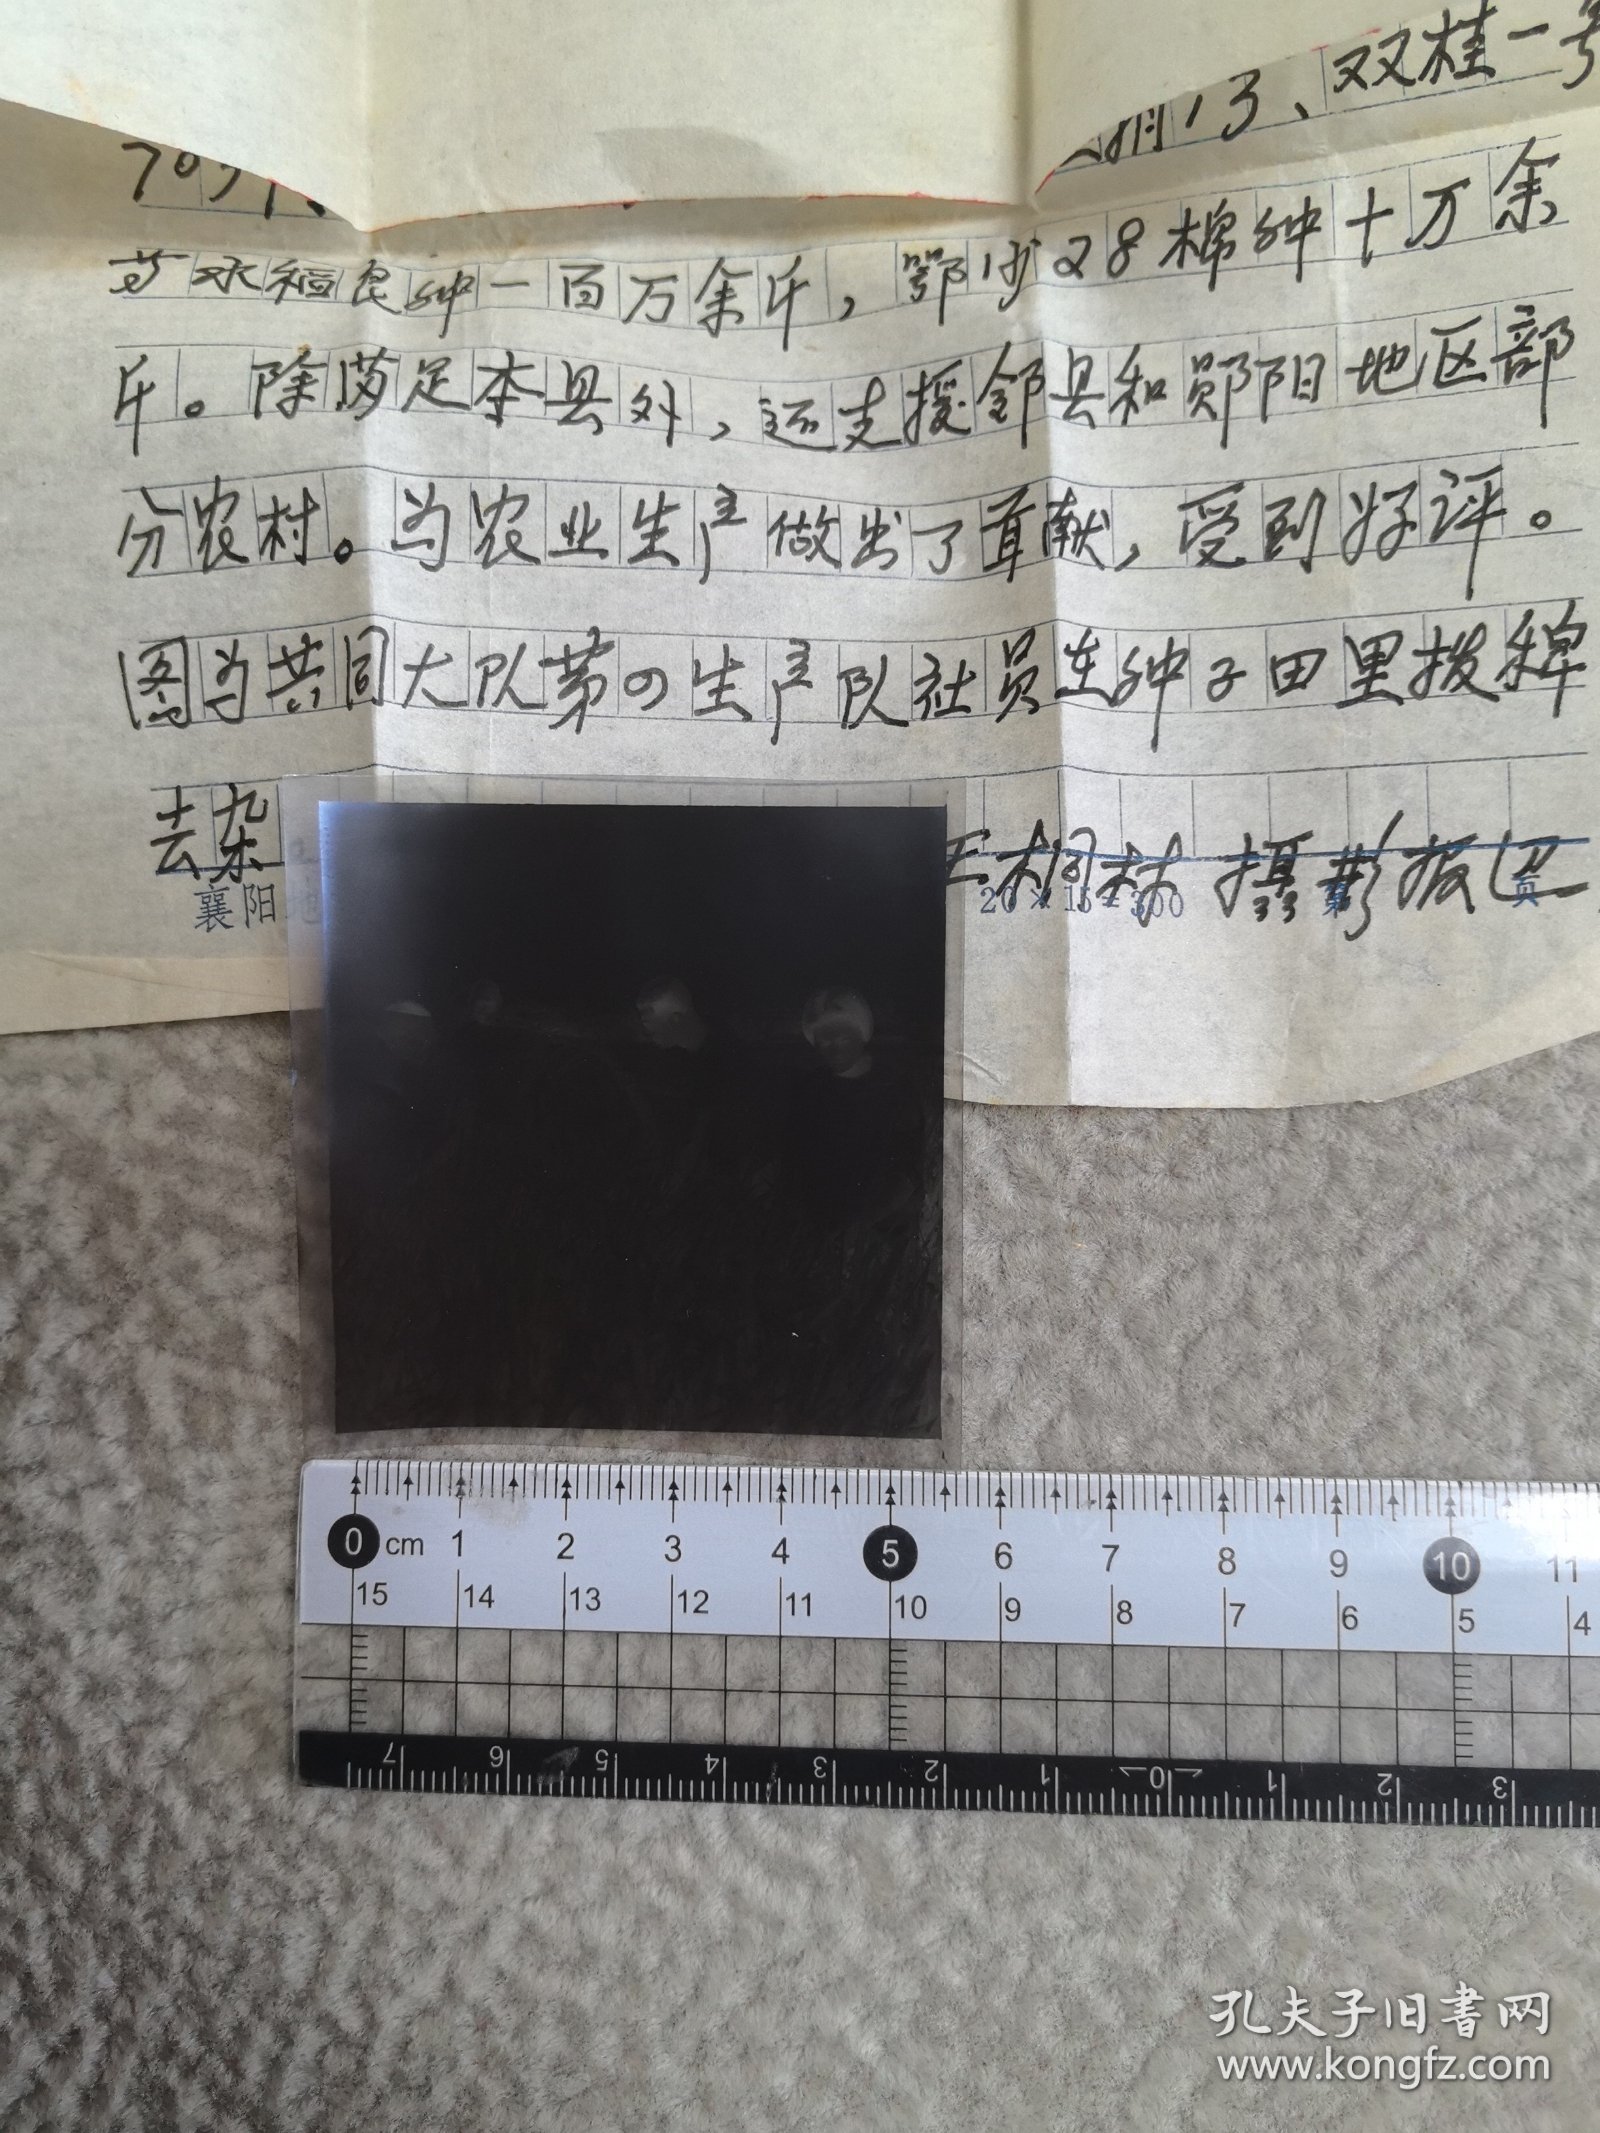 、双桂一号
等水稻良种一百万余斤，鄂沙28棉种十万余
斤。除满足本县外，还支援邻县和郧阳地区部
分农村。为农业生产做出了贡献，受到好评。
图为共同大队第四生产队社员在种子田里拔稗
去杂
王相林 摄影报道
襄阳
20×15=300 第 页
0 cm 1 2 3 4 5 6 7 8 9 10 11
15 14 13 12 11 10 9 8 7 6 5 4
7 6 5 4 3 2 1 0 1 2 3
孔夫子旧书网
www.kongfz.com